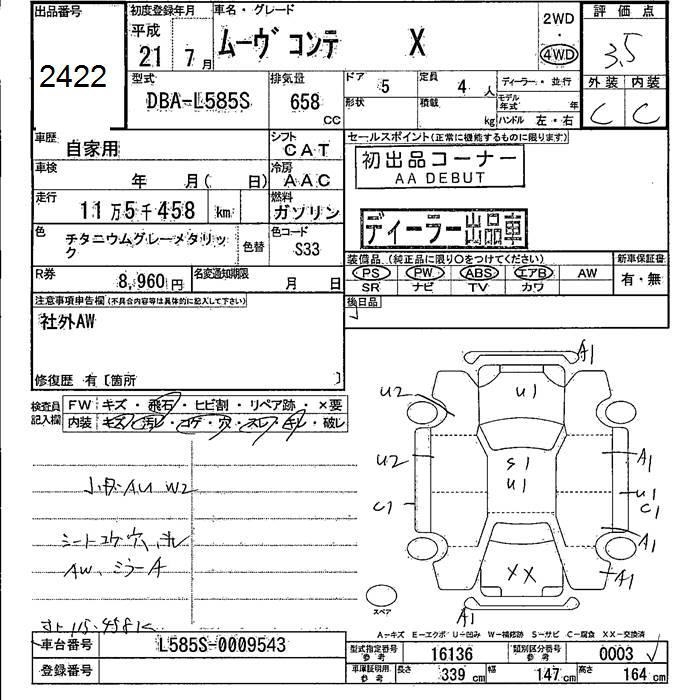 出品番号 初度登録年月 車名・グレード 2WD ・ 4WD 評価点
2422 平成 21 7月 ムーヴ コンテ X 3.5
型式 DBA-L585S 排気量 658 CC ドア 5 定員 4人 ディーラー・並行
形状 積載 kg モデル年式 年 ハンドル 左・右
外装 内装
C C
車歴 自家用 シフト CAT
セールスポイント(正常に機能するものに限ります)
初出品コーナー
AA DEBUT
車検 年 月( 日) 冷房 AAC
走行 11万5千458 km 燃料 ガソリン
ディーラー出品車
色 チタニウムグレーメタリック 色替 色コード S33
装備品(純正品に限り○をつけてください) 新車保証書
PS PW ABS エアB AW 有・無
SR ナビ TV カワ
R券 8,960円 名変通知期限 月 日
後日品
注意事項申告欄(不具合内容等は具体的に記入して下さい)
社外AW
修復歴 有〔箇所 〕
検査員記入欄 FW キズ・飛石・ヒビ割・リペア跡・×要
内装 キズ・汚レ・コゲ・穴・スレ・キレ・破レ
小傷・AU W2
シートコゲ穴、キレ
AW、ミラーA
A1
U2 U1
U2 S1 A1
U1 U1
C1 C1
A1
XX A1
スペア A1
A-キズ E-エクボ U-凹み W-補修跡 S-サビ C-腐食 XX-交換済
車台番号 L585S-0009543
登録番号
型式指定番号 参考 16136 類別区分番号 参考 0003
車庫証明用 参考 長さ 339 cm 幅 147 cm 高さ 164 cm